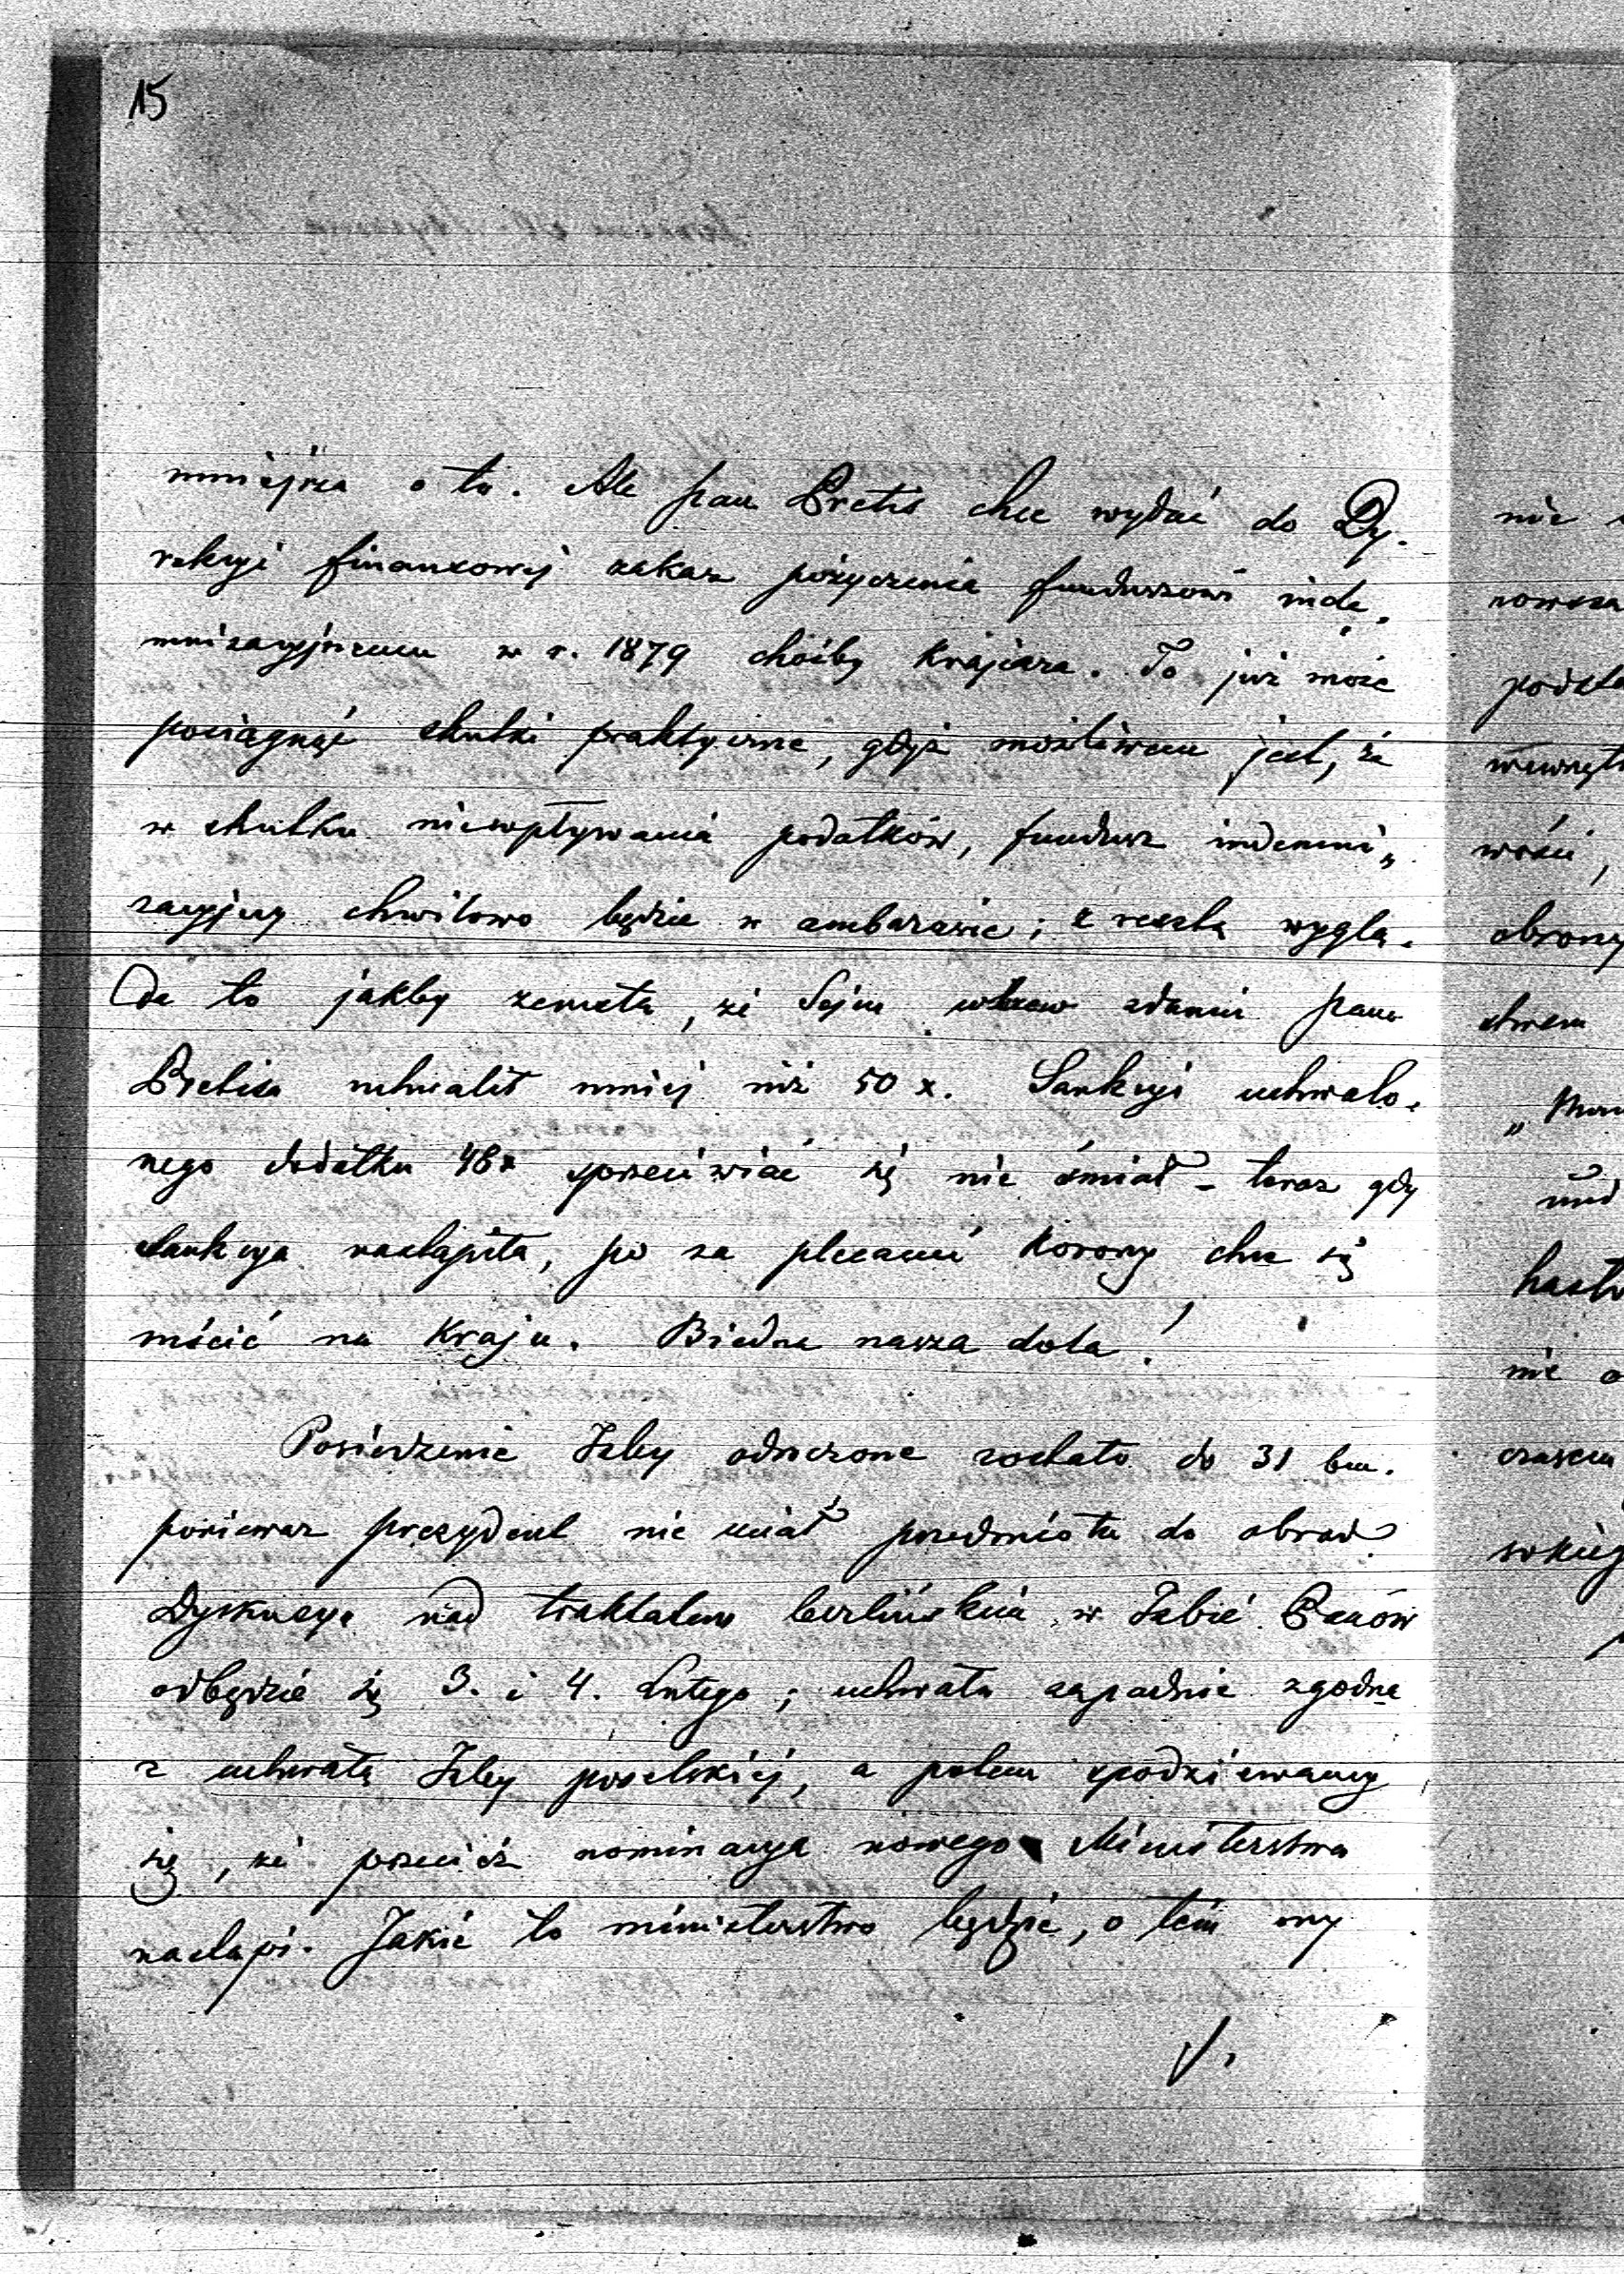 15
mniejsza o to. Ale pan Pretis chce wydać do Dy-
rekcyi finansowej zakaz pożyczenia funduszowi inde-
mnizacyjnemu w r. 1879 choćby krajcara. To już może
pociągnąć skutki praktyczne, gdyż możliwem jest, że
w skutku niewpływania podatków, fundusz indemni„
zacyjny chwilowo będzie w ambarasie; z resztą wyglą-
da to jakby zemsta, że Sejm wbrew zdaniu pana
Pretisa uchwalił mniej niż 50 x. Sankcyi uchwalo-
nego dodatku 48x sprzeciwiać się nie śmiał – teraz gdy
sankcya nastąpiła, po za plecami Korony chce się
mścić na Kraju. Biedna nasza dola!
Posiedzenie Izby odroczone zostało do 31 bm.
ponieważ prezydent nie miał przedmiotu do obrad.
Dyskusya nad traktatem berlińskim w Izbie Panów
odbędzie się 3. i 4. Lutego; uchwała zapadnie zgodna
z uchwałą Izby poselskiej, a potem spodziewamy
się, że przecież nominacya nowego Ministerstwa
nastąpi. Jakie to ministerstwo będzie, o tém my
nie
obrony
nie
czasem